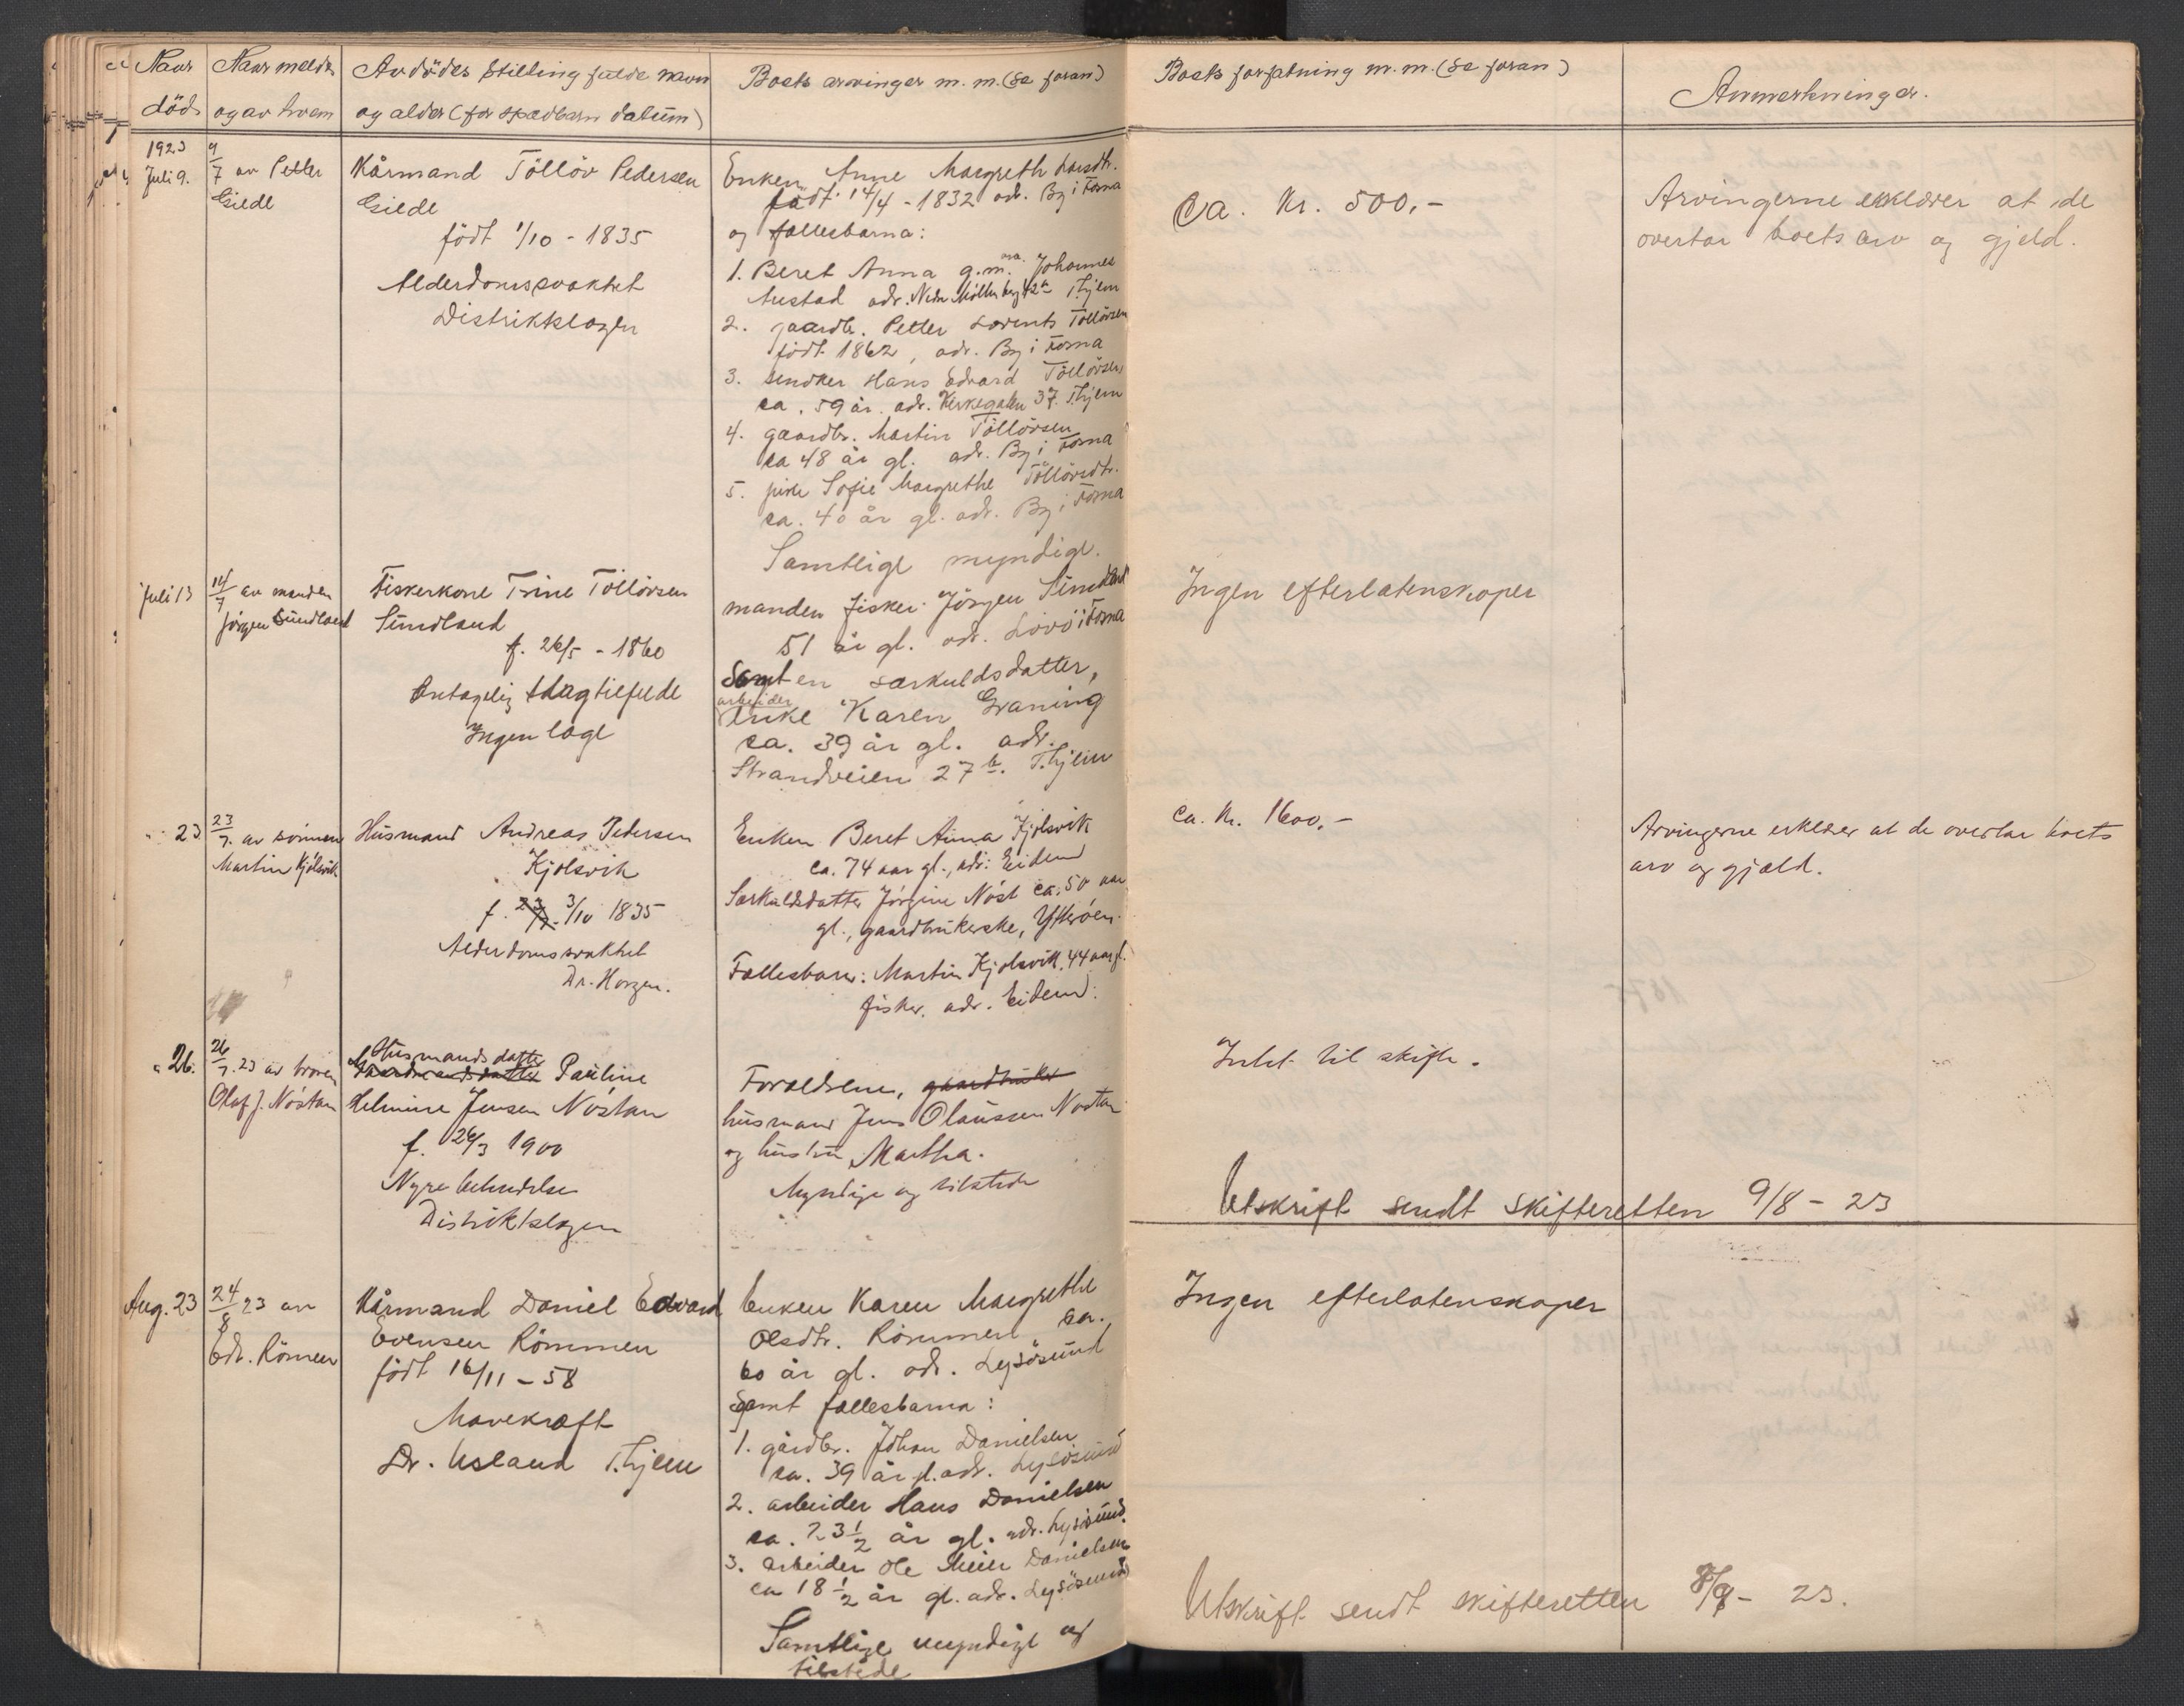 Naar
död
Naar meldt
og av hvem
Avdödes stilling fulde navn
og alder (for spædbarn datum)
Boets arvinger m. m. (se foran)
Boets forfatning m. m. (se foran)
Anmerkninger.
1923
Juli 9.
9/7 av Petter
Gilde
Kårmand Töllöv Pedersen
Gilde
födt 1/10 - 1835
Alderdomssvakhet
Distriktslægen
Enken Anne Margreth Larsdtr.
født 14/4 - 1832 adr. By i Fosna
og fællesbarna:
1. Beret Anna g.m. Johannes
Austad adr. Nedr Möllenberg 42 a T.hjem
2. gaardbr. Petter Lorents Töllövsen
født 1862, adr. By i Fosna
3. snedker Hans Edvard Töllövsen
ca. 59 år. adr. Kirkegaten 37. T.hjem
4. gaardbr. Martin Töllövsen
ca 48 år gl. adr. By i Fosna
5. pike Sofie Margrethe Töllövsdtr.
ca. 40 år gl. adr. By i Fosna
Samtlige myndige.
Ca. Kr. 500,-
Arvingerne erklærer at de
overtar boets arv og gjeld.
Juli 13
14/7 av manden
Jörgen Sundland
Fiskerkone Trine Töllövsen
Sundland
f. 26/5 - 1860
Antagelig slagtilfelde
Ingen læge
manden fisker Jörgen Sundland
51 år gl. adr. Lovö i Fosna
Samt en særkuldsdatter,
arbeider
enke Karen Graning
ca. 39 år gl. adr.
Strandveien 27 b. T.hjem
Ingen efterlatenskaper
" 23
23/7. av sönnen
Martin Kjölsvik
Husmand Andreas Pedersen
Kjölsvik
f. 23/7. 3/10 1835
Alderdomssvakhet
Dr. Horgen.
Enken Beret Anna Kjölsvik
ca. 74 aar gl., adr: Eidem
Særkuldsdatter Jörgine Nöst ca. 50 aar
gl., gaardbrukerske, Ytteröen.
Fællesbarn: Martin Kjölsvik, 44 aar gl.
fisker. adr. Eidem.
Ca. Kr. 1600,-
Arvingerne erklærer at de overtar boets
arv og gjæld.
" 26.
26/7.23 av broren
Olaf J. Nöstan
Husmandsdatter
Gaardmandsdatter Pauline
Helmine Jensen Nöstan
f. 26/3 1900
Nyrebetændelse
Distriktslægen
Forældrene, gaardbruker
husmand Jens Olaussen Nöstan
og hustru Martha.
Myndige og tilstede
Intet til skifte.
Utskrift sendt skifteretten 9/8 - 23
Aug. 23
24/8 23 av
Edv. Römmen
Kårmand Daniel Edvard
Evensen Römmen
födt 16/11 - 58
Mavekræft
Dr. Usland T.hjem
Enken Karen Margrethe
Olsdtr. Römmen ca.
60 år gl. adr. Lysösund
Samt fællesbarna:
1. gårdbr. Johan Danielsen
ca. 39 år gl. adr. Lysösund
2. arbeider Hans Danielsen
ca. 23 1/2 år gl. adr. Lysösund.
3. arbeider Ole Meier Danielsen
ca 18 1/2 år gl. adr. Lysösund
Samtlige myndige og
tilstede
Ingen efterlatenskaper
Utskrift sendt skifteretten 8/9 - 23.